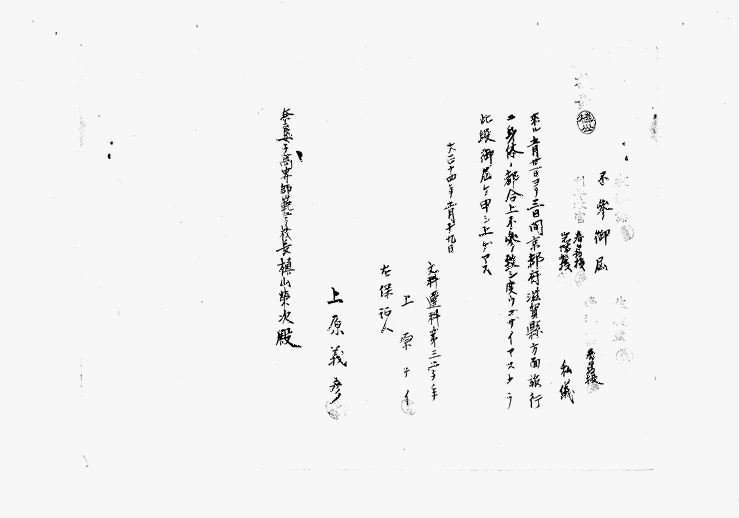 不參御届
私儀
来ル五月廿一日ヨリ三日間京都府滋賀縣方面旅行
ニ身体ノ都合上不參致シ度ウゴザイマスカラ
此段御届ケ申シ上ゲマス
大正十四年五月十九日
文科選科第三學年
上原
右保証人
上原義彦
奈良女子高等師範學校長槙山榮次殿